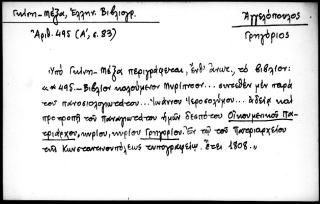 Γκίνη - Μέξα, Ἑλλην. Βιβλιογρ.
Ἀγγελόπουλος
Ἀριθ. 495 (Α', σ. 83)
Γρηγόριος
Ὑπὸ Γκίνη - Μέξα περιγράφεται, ἔνθ' ἀνωτ., τὸ βιβλίον:
«α 495.- Βιβλίον καλούμενον Μυρίπνοον... συντεθὲν μὲν παρὰ
τοῦ πανοσιολογιωτάτου... Ἰωάννου Ἱεροσολύμου... ἀδείᾳ καὶ
προτροπῇ τοῦ Παναγιωτάτου ἡμῶν δεσπότου Οἰκουμενικοῦ Πα-
τριάρχου, κυρίου, κυρίου Γρηγορίου. Ἐν τῷ τοῦ Πατριαρχείου
τῆς Κωνσταντινουπόλεως τυπογραφείῳ. ἔτει 1808.»